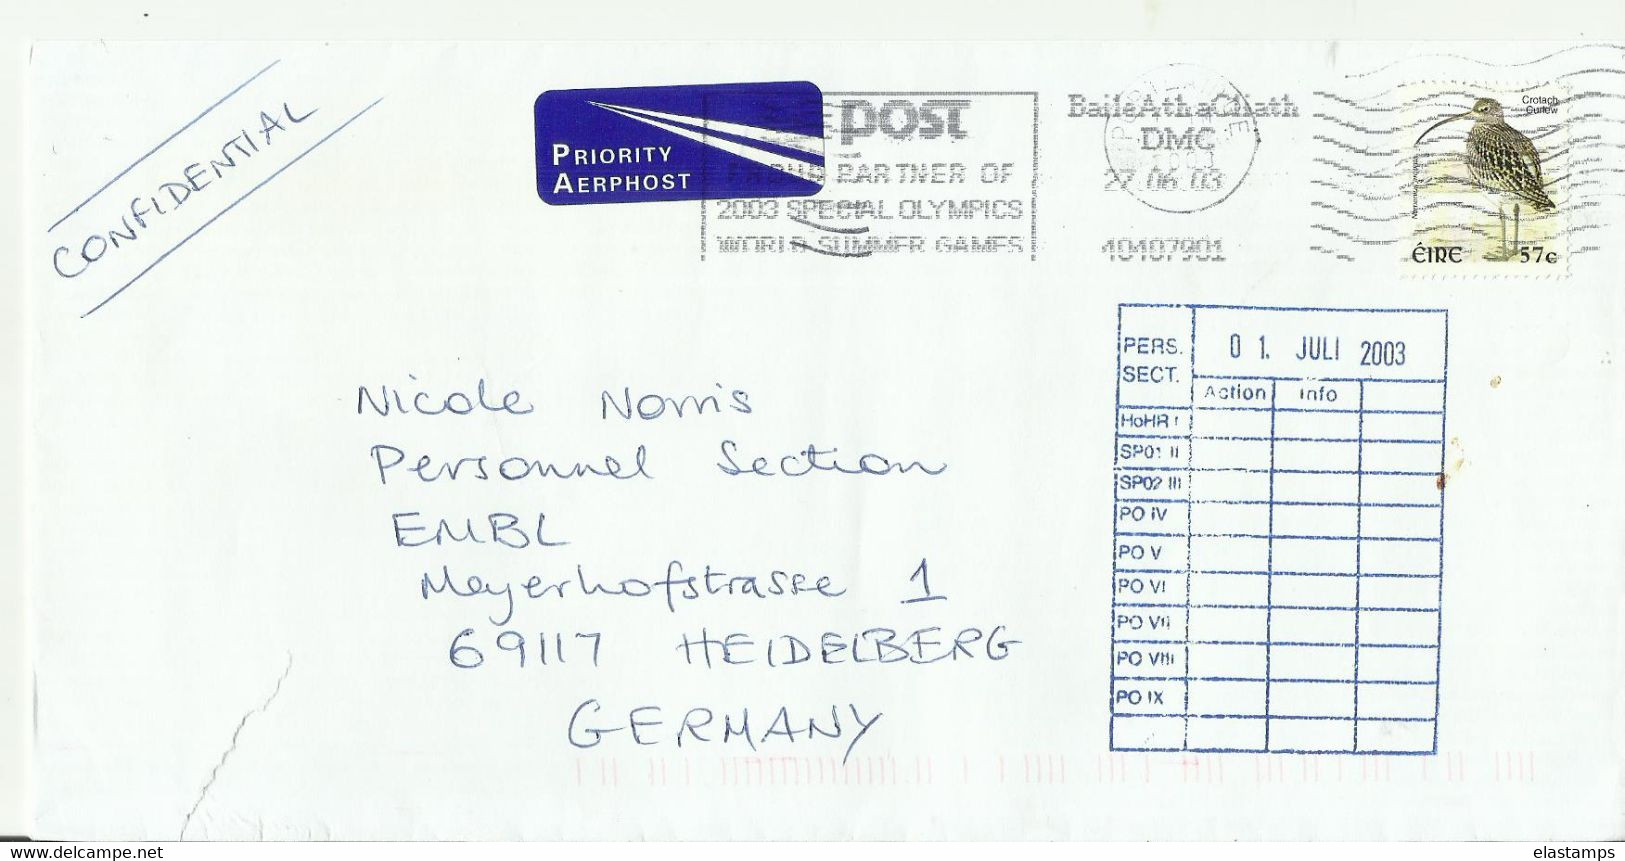 CONFIDENTIAL
PRIORITY
AERPHOST
post
PROUD PARTNER OF
2003 SPECIAL OLYMPICS
WORLD SUMMER GAMES
Baile Atha Cliath
DMC
27 06 03
40407901
Crotach
Curlew
ÉIRE 57c
Nicole Norris
Personnel Section
EMBL
Meyerhofstrasse 1
69117 HEIDELBERG
GERMANY
PERS.
SECT.
01. JULI 2003
Action Info
HoHR I
SP01 II
SP02 III
PO IV
PO V
PO VI
PO VII
PO VIII
PO IX
www.delcampe.net
elastamps